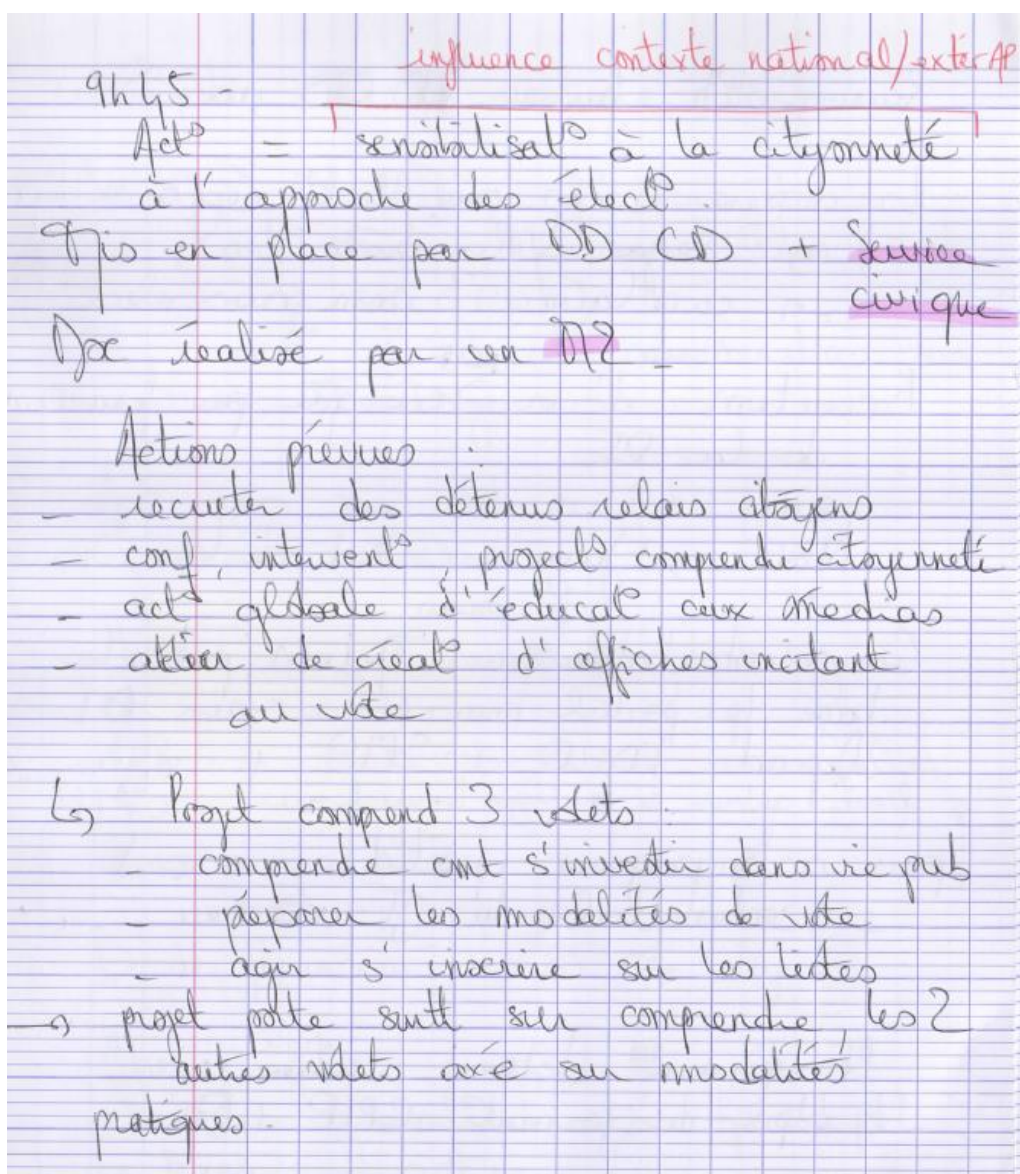 influence contexte national/extér AP
9h45 -
Act° = sensibilisat° à la cityonneté
à l'approche des élect°.
Mis en place par DD CD + Service
civique
Doc réalisé par un M2 -
Actions prévues :
- recruter des détenus relais citoyens
- conf, intervent°, project° comprendre citoyenneté
- act° globale d'éducat° aux médias
- atelier de créat° d'affiches incitant
au vote
↳ Projet comprend 3 volets :
- comprendre cmt s'investir dans vie pub
- préparer les modalités de vote
- agir s'inscrire sur les listes
→ projet porte surtt sur comprendre, les 2
autres volets axé sur modalités
pratiques.